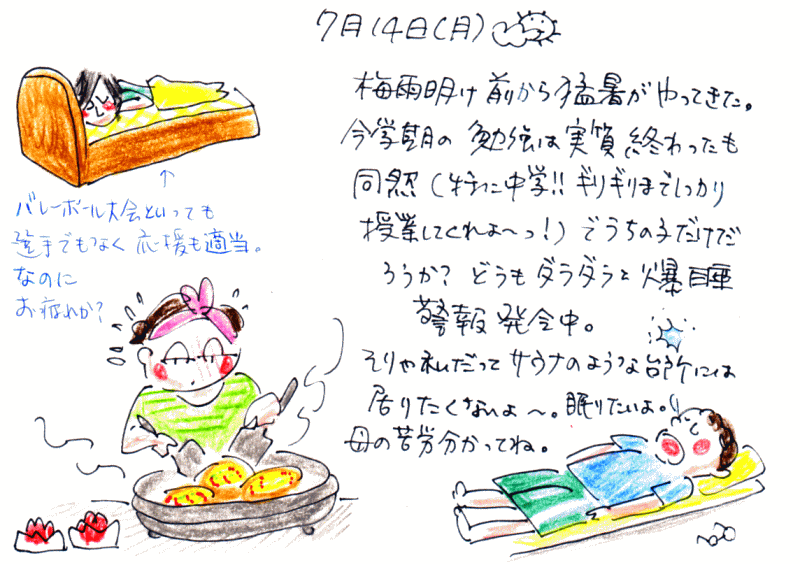 7月14日(月)
梅雨明け前から猛暑がやってきた。
今学期の勉強は実質終わったも
同然(特に中学!!ギリギリまでしっかり
授業してくれよ〜っ!)でうちの子だけだ
ろうか?どうもダラダラと爆睡
警報発令中。
そりゃ私だってサウナのような台所には
居りたくないよ〜。眠りたいよ。
母の苦労分かってね。
↑
バレーボール大会といっても
選手でもなく応援も適当。
なのに
お疲れか?